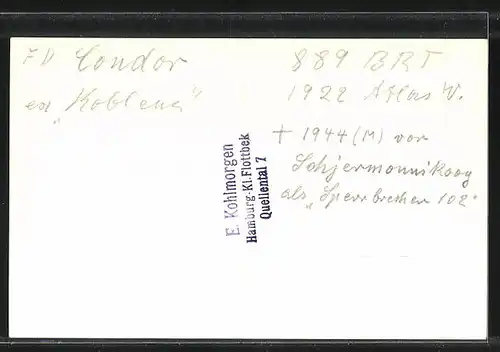 FD Condor
ex "Koblenz"
889 BRT
1922 Atlas W.
+ 1944 (M) vor
Schjermonnikoog
als "Sperrbrecher 102"
E. Kohlmorgen
Hamburg-Kl. Flottbek
Quellental 7